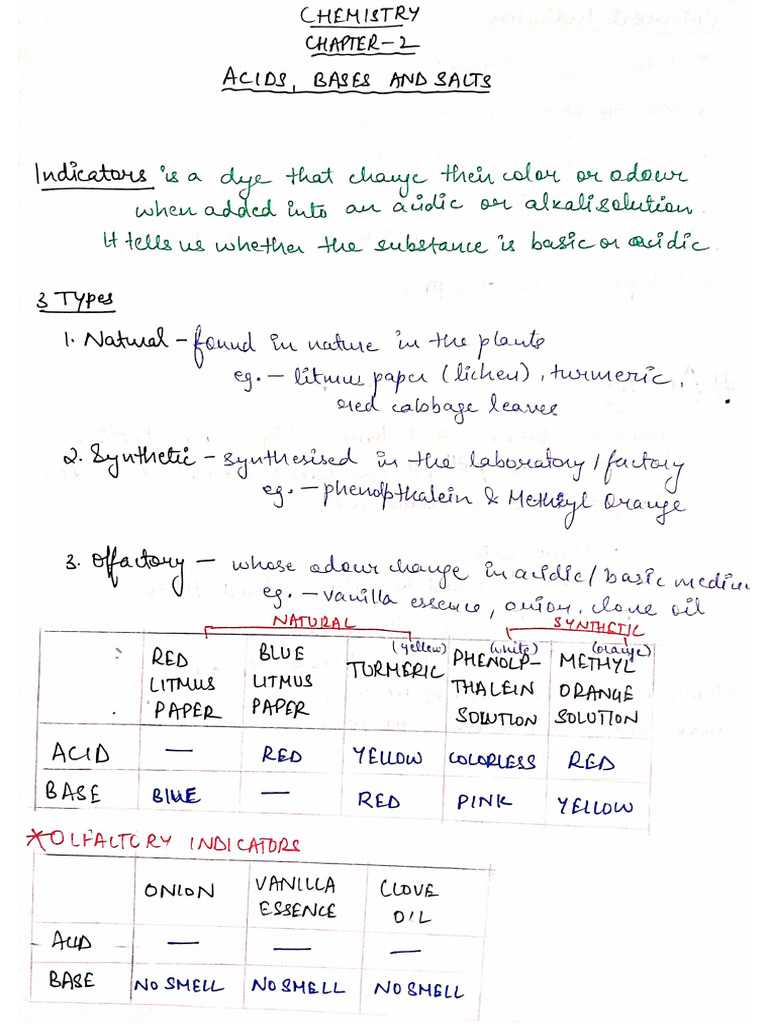 CHEMISTRY
CHAPTER-2
ACIDS, BASES AND SALTS
Indicators is a dye that change their color or odour
when added into an acidic or alkali solution.
It tells us whether the substance is basic or acidic.
3 Types
1. Natural - found in nature in the plants
eg. - litmus paper (lichen), turmeric,
red cabbage leaves
2. Synthetic - synthesised in the laboratory / factory
eg. - phenolpthalein & Methyl Orange
3. Olfactory - whose odour change in acidic / basic medium
eg. - vanilla essence, onion, clove oil
NATURAL SYNTHETIC
RED LITMUS PAPER BLUE LITMUS PAPER (yellow) TURMERIC (white) PHENOLP-THALEIN SOLUTION (orange) METHYL ORANGE SOLUTION
ACID — RED YELLOW COLORLESS RED
BASE BLUE — RED PINK YELLOW
*OLFACTORY INDICATORS
ONION VANILLA ESSENCE CLOVE OIL
ACID — — —
BASE NO SMELL NO SMELL NO SMELL